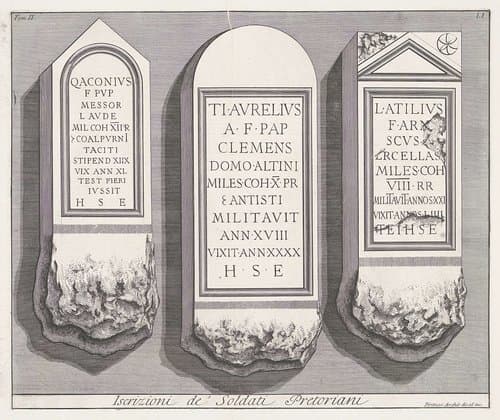 Tom. II.
LI
Q ACONIVS
F PVP
MESSOR
LAVDE
MIL COH XII PR
Ɔ CALPVRNI
TACITI
STIPEND XIIX
VIX ANN XL
TEST FIERI
IVSSIT
H S E
TI·AVRELIVS
A·F·PAP
CLEMENS
DOMO·ALTINI
MILES·COH·X·PR
Ɔ ANTISTI
MILITAVIT
ANN·XVIII
VIXIT·ANN·XXXX
H·S·E
L·ATILIVS
F·ARN
SCVS
ERCELLAS
MILES·COH
VIII·RR
MILITAVIT·ANNOS·XXI
VIXIT·ANNOS
H·S·E
Iscrizioni de' Soldati Pretoriani